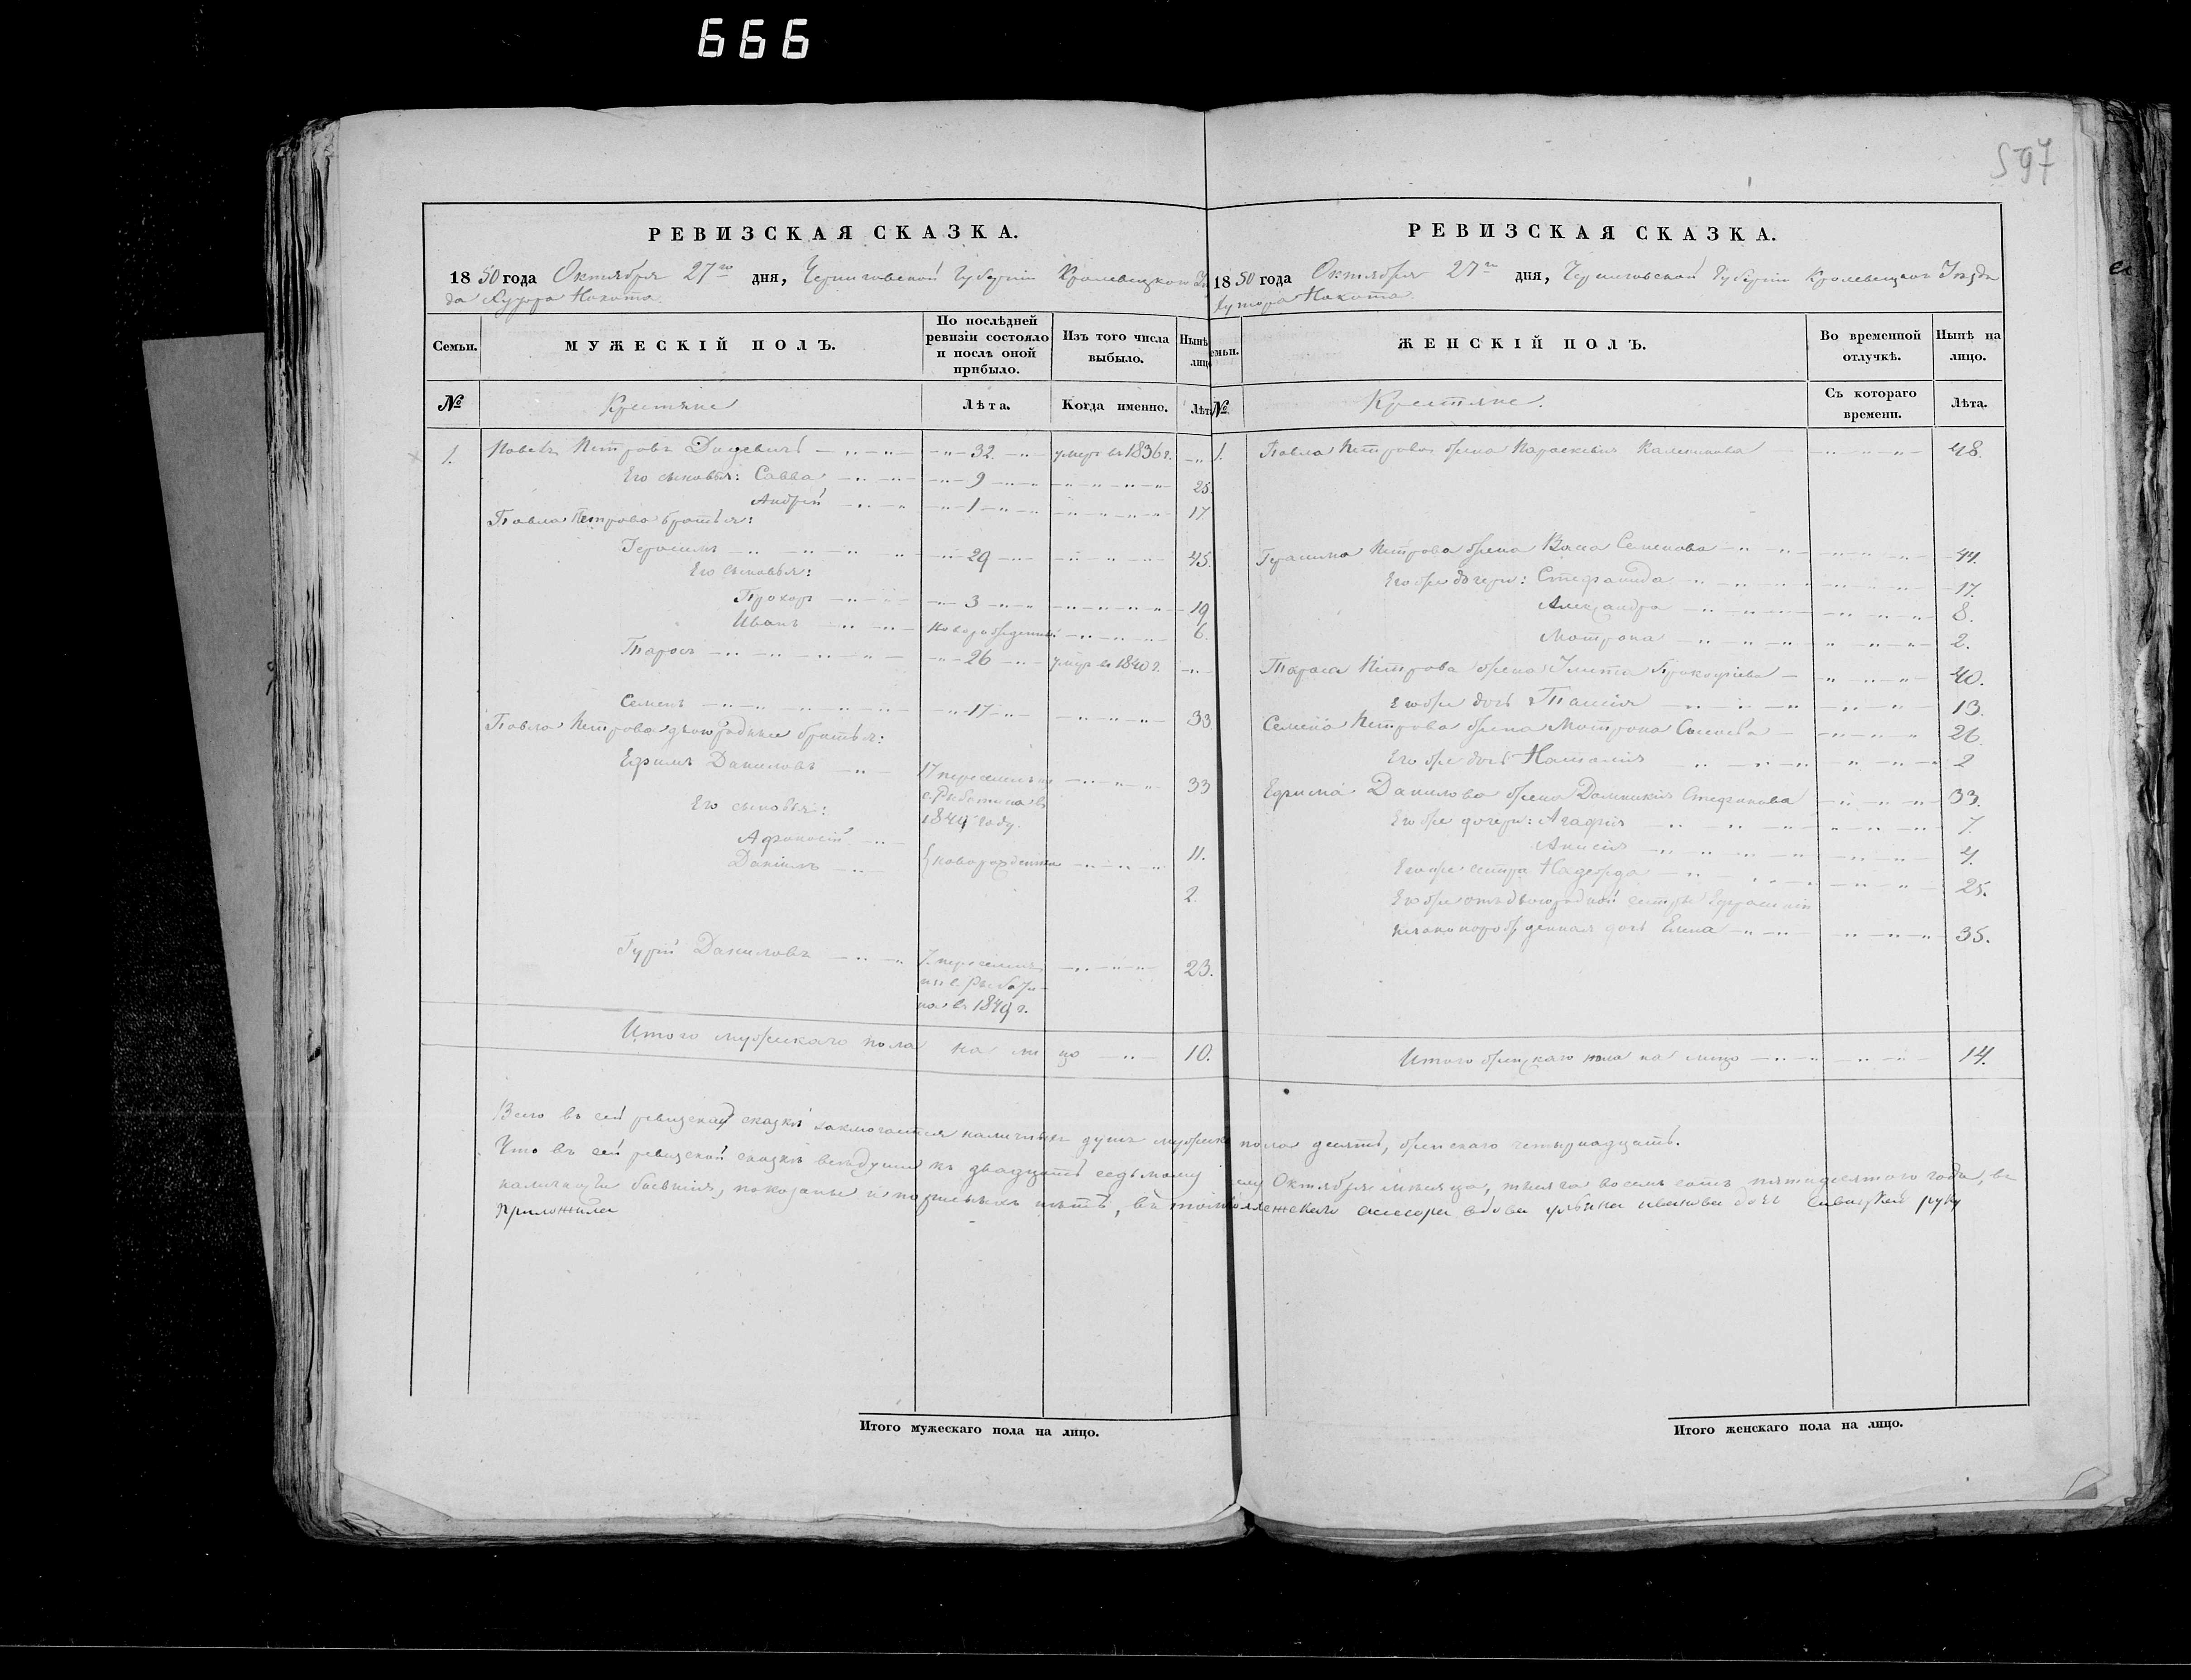 666
597
РЕВИЗСКАЯ СКАЗКА.
1850 года Октября 27го дня, Черниговской Губернии Кролевецкого Уѣ
да Хутора Нохота
Семьи. МУЖЕСКІЙ ПОЛЪ. По послѣдней ревизіи состояло и послѣ оной прибыло. Изъ того числа выбыло. Нынѣ лицо
№ Крестяне Лѣта. Когда именно. Лѣта
1. Павелъ Петровъ 32. умеръ въ 1836 г.
Его сыновья: Савва 9 25.
Андрей 1 17
Павла Петрова братья:
Герасимъ 29 45.
Его сыновья:
Прохоръ 3 19
Иванъ Новорожденный 6.
Тарасъ 26 умеръ въ 1840 г.
Семенъ 17 33
Павла Петрова двоюродные братья:
Ефимъ Даниловъ 17 переселенъ из с. Рыботина въ 1849 году. 33
Его сыновья:
Афонасій 11.
Даніилъ новорожденны 2.
Гурій Даниловъ 7. переселенъ изъ с. Рыботина въ 1849 г. 23.
Итого мужескаго пола на лицо 10.
РЕВИЗСКАЯ СКАЗКА.
1850 года Октября 27го дня, Черниговской Губерніи Кролевецкого Уѣзда
Хутора Нохота.
емьи. ЖЕНСКІЙ ПОЛЪ. Во временной отлучкѣ. Нынѣ на лицо.
№ Крестяне. Съ котораго времени. Лѣта.
1. Павла Петрова жена Параскевія Калиникова 48.
Герасима Петрова жена Васа Семенова 44.
Его же дочери: Стефанида 17.
Александра 8.
Мотрона 2.
Тараса Петрова жена Улита Прокофіева 40.
Его же дочь Таисія 13.
Семена Петрова жена Мотрона 26.
Его же дочь Наталія 2
Ефима Данилова жена Домникія Стефанова 33.
Его же дочери: Агафія 7.
Анисія 4.
Его же сестра Надежда 25.
Его же отъ двоюродной сестры Ефросиніи
незаконорожденная дочь Елена 35.
Итого женскаго пола на лицо 14.
Всего въ сей ревизской сказкѣ заключается наличныхъ душъ мужеска пола десять, женскаго четырнадцать.
Что въ сей ревизской сказкѣ все души къ двадцать седьмому Октября мѣсяца, тысяча восемь сотъ пятидесятого года, въ
наличности бывшія, показаны и прописныхъ нѣтъ, въ томъ
вдова Ивановна дочь руку
приложила
Итого мужескаго пола на лицо.
Итого женскаго пола на лицо.